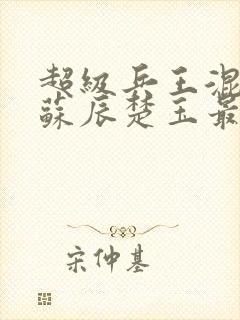 超級兵王混
蘇辰楚玉最
宋仲基